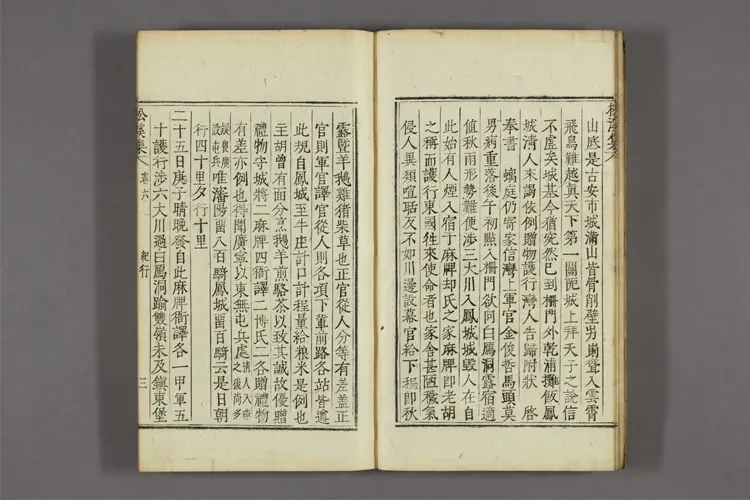 山底是古安市城滿山皆骨削壁屴崱聳入雲霄
飛鳥難越眞天下第一關阨城上拜天子之說信
不虛矣城基今猶宛然已到柵門外乾浦攤飯鳳
城淸人來謁依例贈物護行灣人告歸附狀 啓
奉書 螭庭仍寄家信灣上軍官金俊哲馬頭莫
男病重落後午初點入柵門欲向白鴈洞露宿適
値秋雨形勢難便涉三大川入鳳城城毁人在自
此始有人煙入宿于麻牌却氏之家麻牌卽老胡
之稱而護行東國徃來使命者也家舍甚陋穢氣
侵人異類喧聒反不如川邊設幕官給下程卽秋
露曁羊鵝雞猪柴草也正官從人分等有差蓋正
官則軍官譯官從人則各項下輩前路各站皆遵
此規自鳳城至牛庄計口計程量給粮米是例也
主胡曾有面分烹鵝羊煎駱茶以致其誠故優贈
禮物守城將二麻牌四衙譯二博氏二各贈禮物
有差亦例也得聞廣寧以東無屯兵處淸人入燕之後尙多
設屯兵唯瀋陽留八百騎鳳城留百騎云是日朝
行四十里夕行十里
二十五日庚子晴晩發自此麻牌衙譯各一甲軍五
十護行涉六大川過白鴈洞踰雙嶺未及鎭東堡
松溪集 卷六 紀行 三